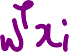 w^T x_i